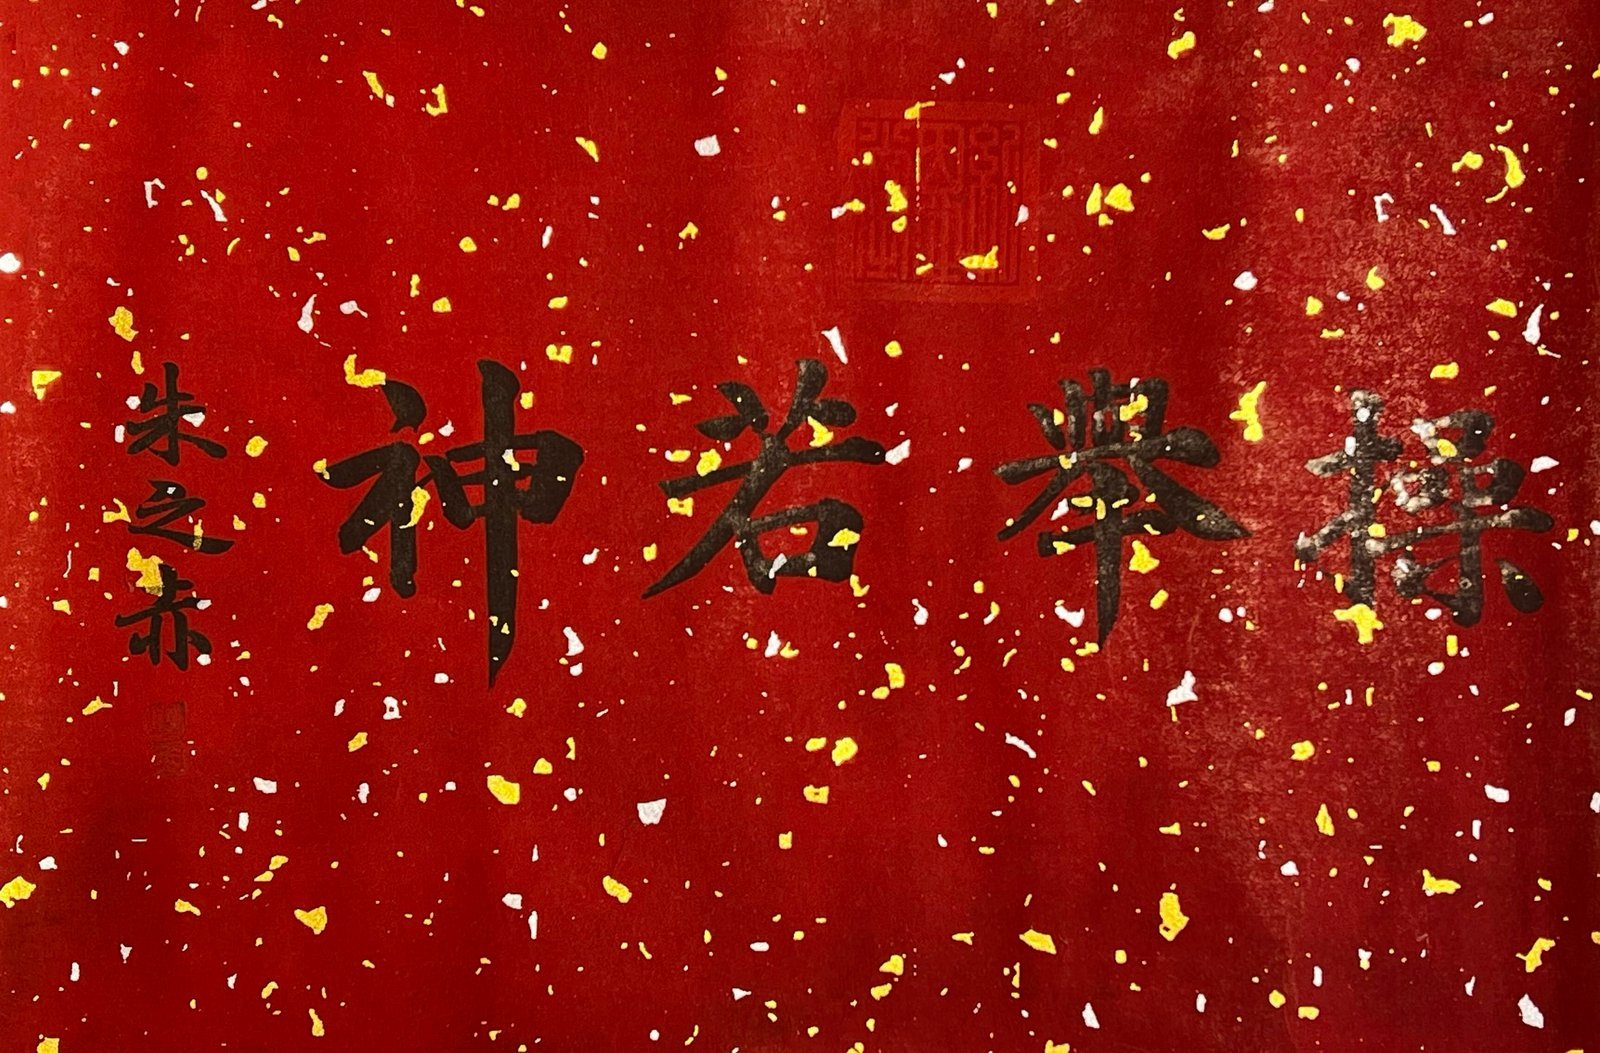 操舉若神
朱之赤